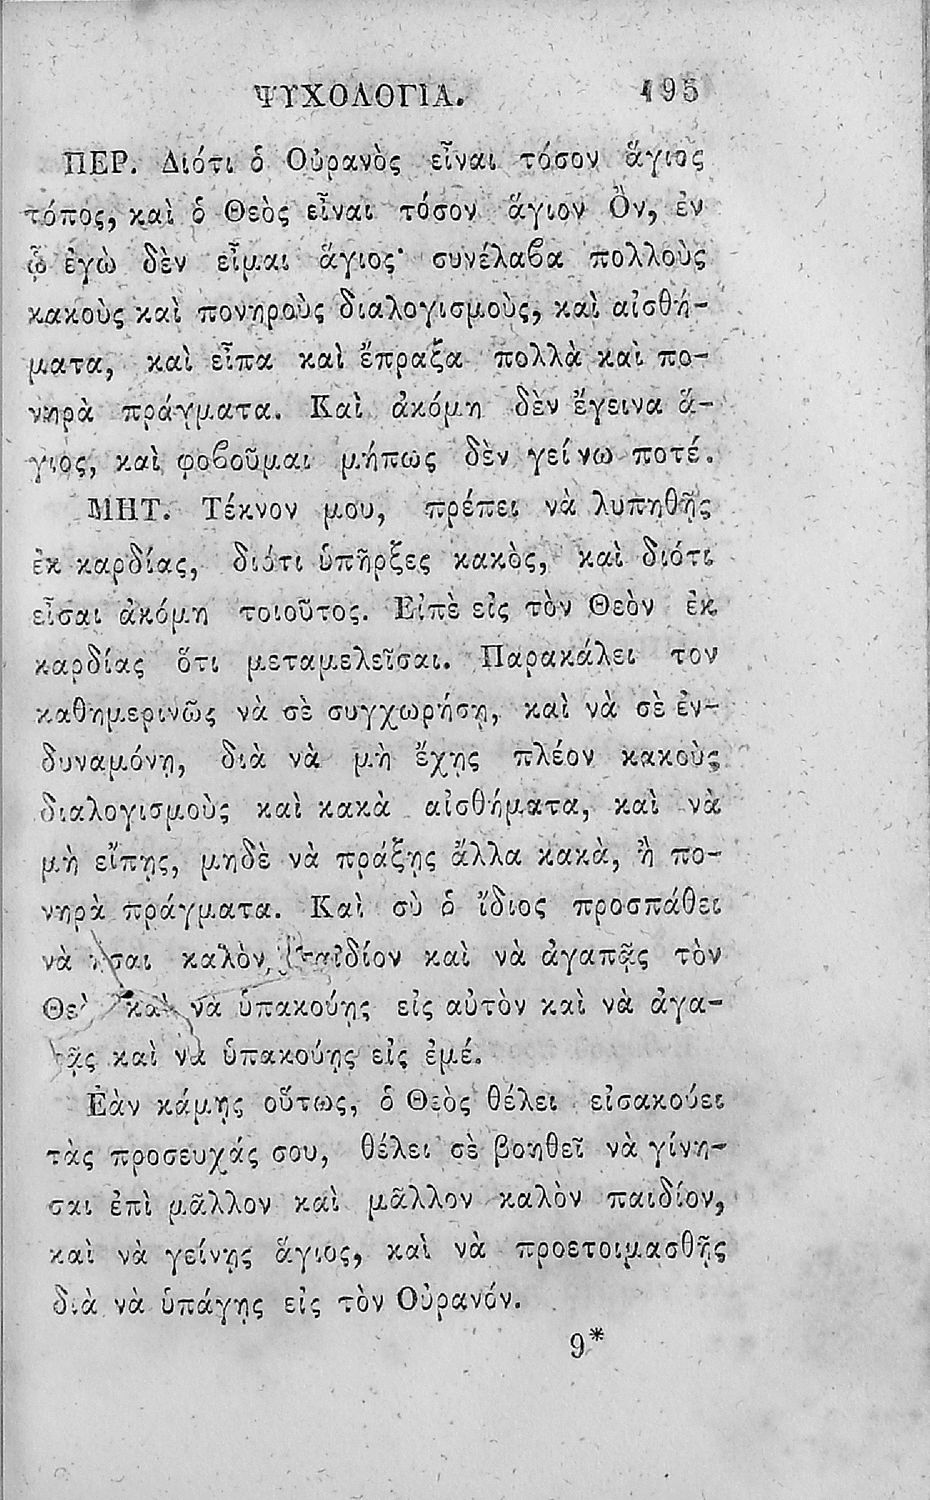 ΨΥΧΟΛΟΓΙΑ. 195
ΠΕΡ. Διότι ὁ Οὐρανὸς εἶναι τόσον ἅγιος
τόπος, καὶ ὁ Θεὸς εἶναι τόσον ἅγιον Ὂν, ἐν
ᾧ ἐγὼ δὲν εἶμαι ἅγιος· συνέλαβα πολλοὺς
κακοὺς καὶ πονηροὺς διαλογισμοὺς, καὶ αἰσθή-
ματα, καὶ εἶπα καὶ ἔπραξα πολλὰ καὶ πο-
νηρὰ πράγματα. Καὶ ἀκόμη δὲν ἔγεινα ἅ-
γιος, καὶ φοβοῦμαι μήπως δὲν γείνω ποτέ.
ΜΗΤ. Τέκνον μου, πρέπει νὰ λυπηθῇς
ἐκ καρδίας, διότι ὑπῆρξες κακὸς, καὶ διότι
εἶσαι ἀκόμη τοιοῦτος. Εἰπὲ εἰς τὸν Θεὸν ἐκ
καρδίας ὅτι μεταμελεῖσαι. Παρακάλει τον
καθημερινῶς νὰ σὲ συγχωρήσῃ, καὶ νὰ σὲ ἐν-
δυναμόνῃ, διὰ νὰ μὴ ἔχῃς πλέον κακοὺς
διαλογισμοὺς καὶ κακὰ αἰσθήματα, καὶ νὰ
μὴ εἴπῃς, μηδὲ νὰ πράξῃς ἄλλα κακὰ, ἢ πο-
νηρὰ πράγματα. Καὶ σὺ ὁ ἴδιος προσπάθει
νὰ ἦσαι καλὸν παιδίον καὶ νὰ ἀγαπᾷς τὸν
καὶ νὰ ὑπακούῃς εἰς αὐτὸν καὶ νὰ ἀγα-
πᾷς καὶ νὰ ὑπακούῃς εἰς ἐμέ.
Ἐὰν κάμῃς οὕτως, ὁ Θεὸς θέλει εἰσακούει
τὰς προσευχάς σου, θέλει σὲ βοηθεῖ νὰ γίνη-
σαι ἐπὶ μᾶλλον καὶ μᾶλλον καλὸν παιδίον,
καὶ νὰ γείνῃς ἅγιος, καὶ νὰ προετοιμασθῇς
διὰ νὰ ὑπάγῃς εἰς τὸν Οὐρανόν.
9*